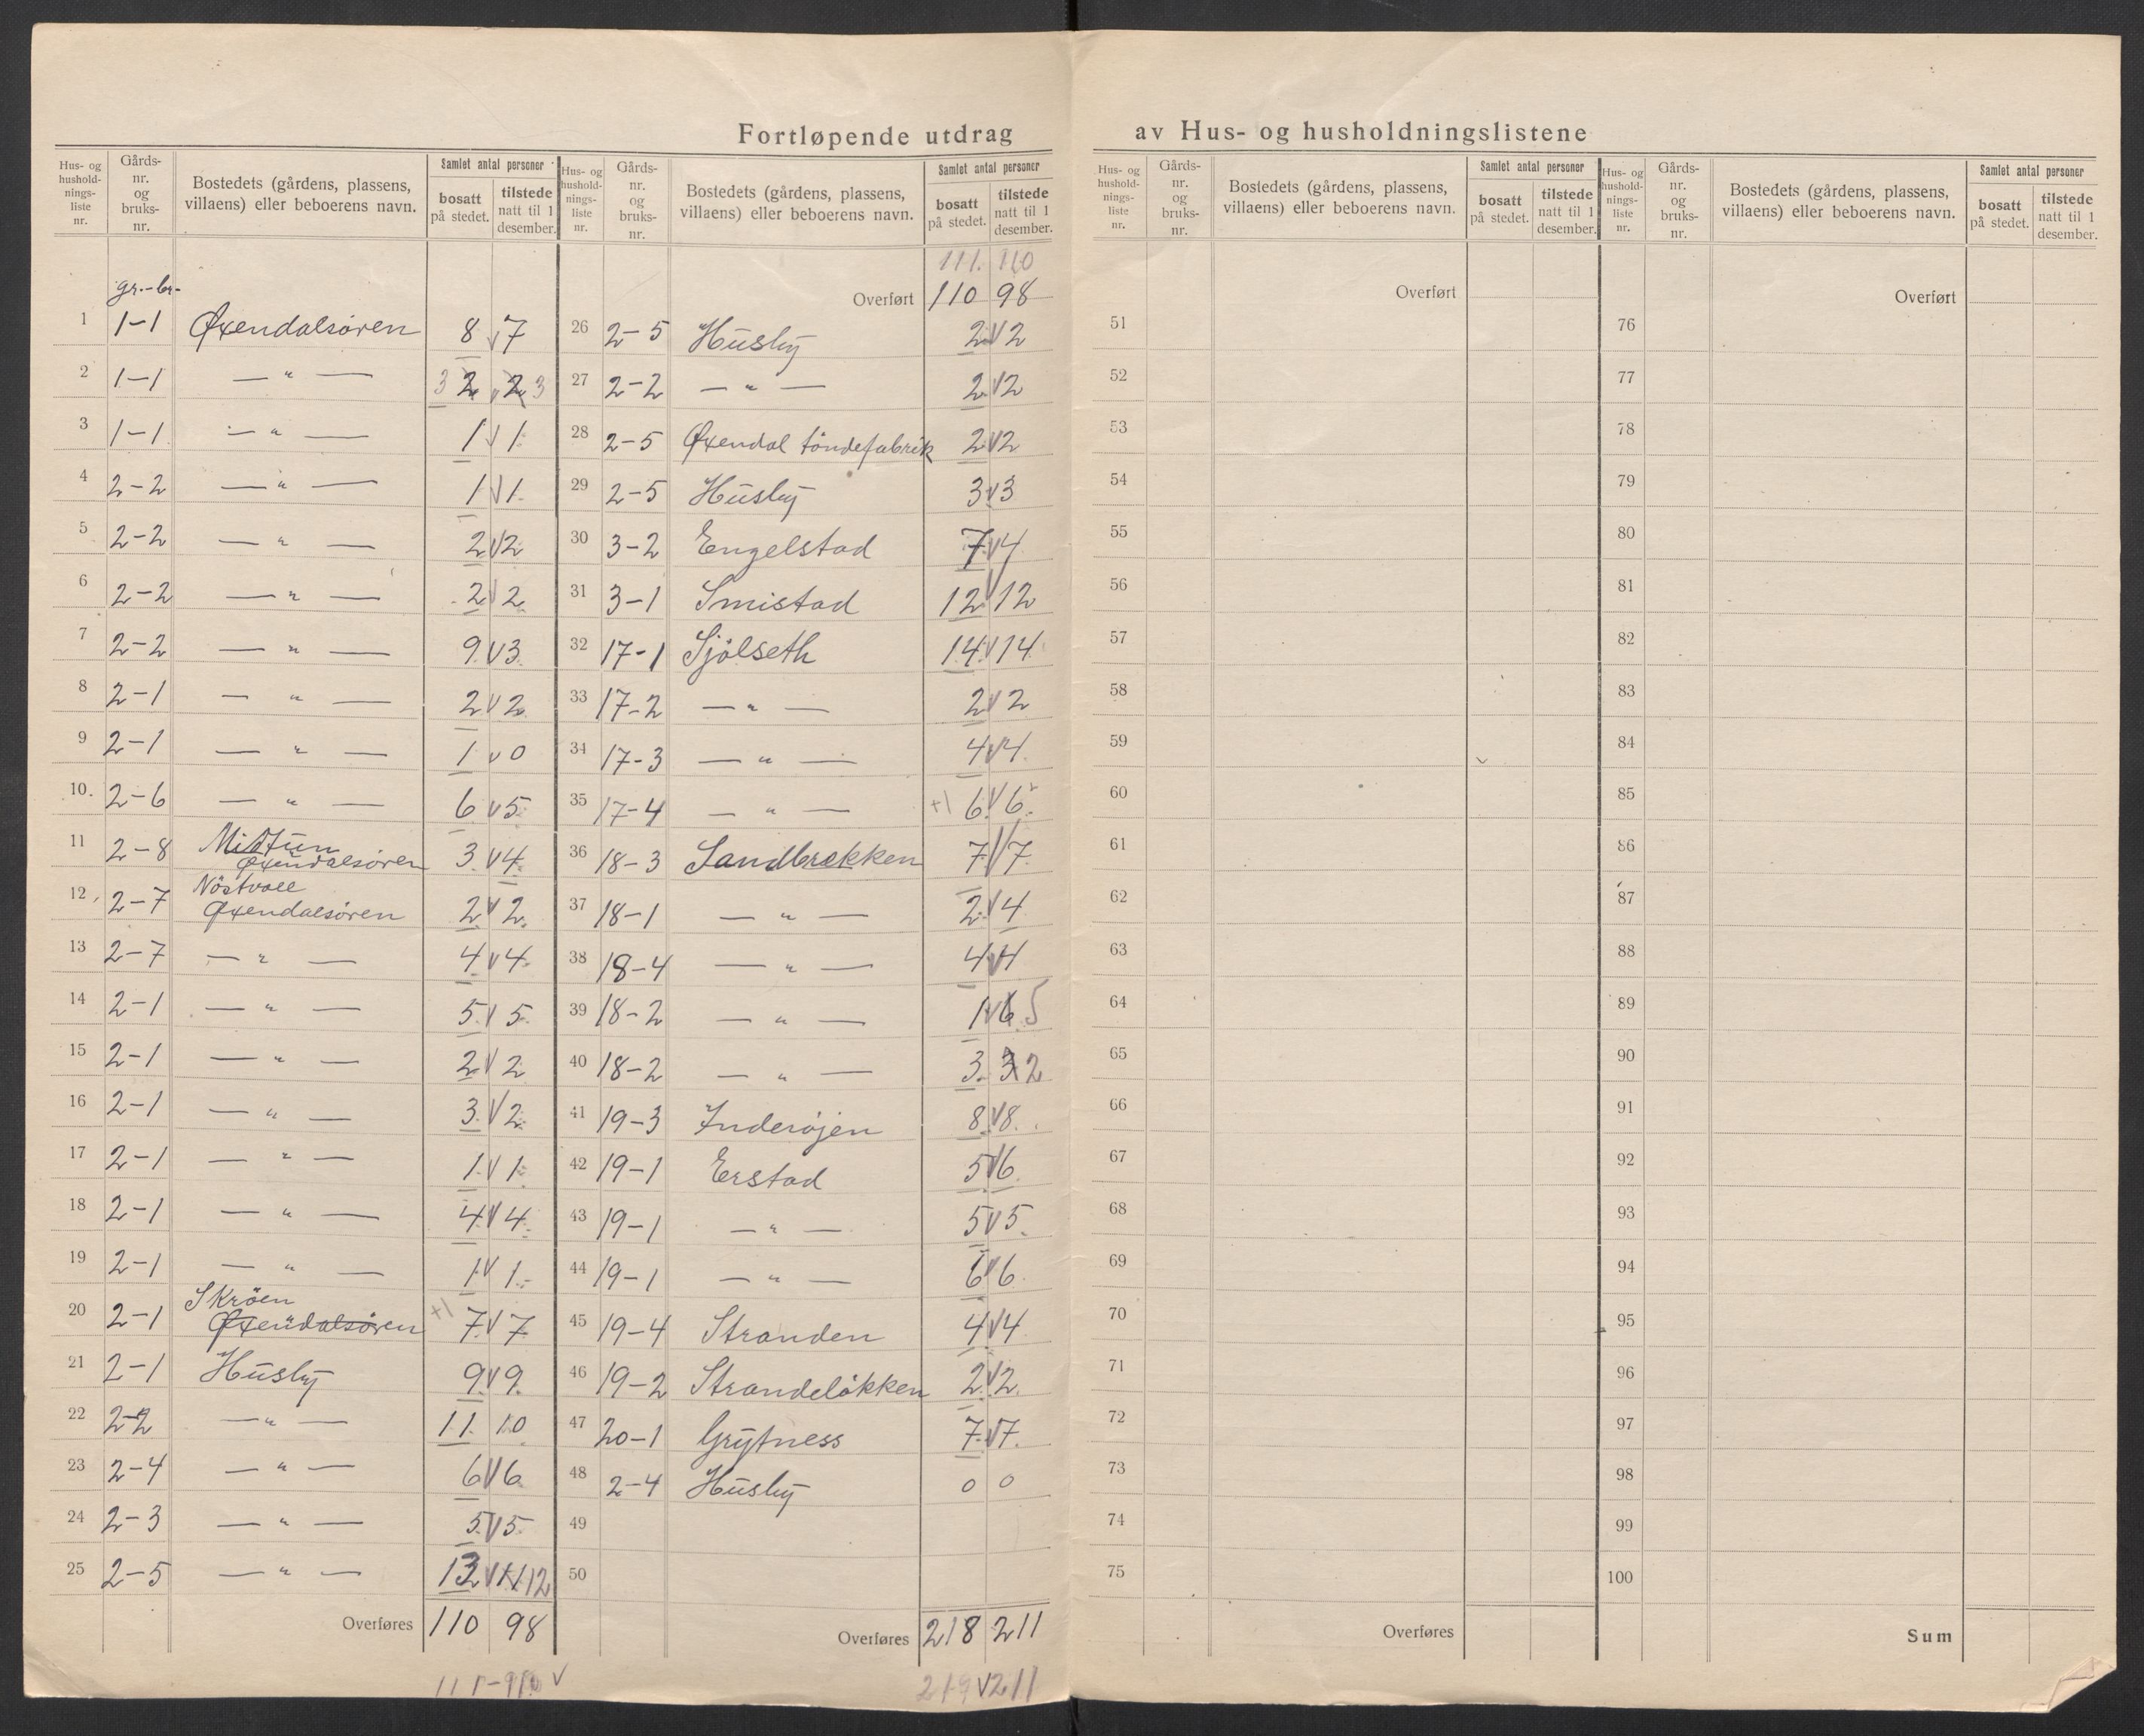 Fortløpende utdrag av Hus- og husholdningslistene
Hus- og hushold- nings- liste nr.
Gårds- nr. og bruks- nr.
Bostedets (gårdens, plassens, villaens) eller beboerens navn.
Samlet antal personer
bosatt på stedet.
tilstede natt til 1 desember.
gr.-br.
1 1-1 Øxendalsøren 8 7
2 1-1 — " — 3 2 2 3
3 1-1 — " — 1 1
4 2-2 — " — 1 1
5 2-2 — " — 2 2
6 2-2 — " — 2 2
7 2-2 — " — 9 3
8 2-1 — " — 2 2
9 2-1 — " — 1 0
10. 2-6 — " — 6 5
11 2-8 Midtun Øxendalsøren 3 4
12 2-7 Nöstvoll Øxendalsøren 2 2
13 2-7 — " — 4 4
14 2-1 — " — 5 5
15 2-1 — " — 2 2
16 2-1 — " — 3 2
17 2-1 — " — 1 1
18 2-1 — " — 4 4
19 2-1 — " — 1 1
20 2-1 Skröen Øxendalsøren +1 7 7
21 2-1 Husby 9 9
22 2-2 — " — 11 10
23 2-4 — " — 6 6
24 2-3 — " — 5 5
25 2-5 — " — 13 11 12
Overføres 110 98
Hus- og hushold- nings- liste nr.
Gårds- nr. og bruks- nr.
Bostedets (gårdens, plassens, villaens) eller beboerens navn.
Samlet antal personer
bosatt på stedet.
tilstede natt til 1 desember.
111. 110
Overført 110 98
26 2-5 Husby 2 2
27 2-2 — " — 2 2
28 2-5 Øxendal töndefabrik 2 2
29 2-5 Husby 3 3
30 3-2 Engelstad 7 4
31 3-1 Smistad 12 12
32 17-1 Sjölseth 14 14
33 17-2 — " — 2 2
34 17-3 — " — 4 4
35 17-4 — " — +1 6 6
36 18-3 Sandbrekken 7 7
37 18-1 — " — 2 4
38 18-4 — " — 4 4
39 18-2 — " — 1 6 5
40 18-2 — " — 3 3 2
41 19-3 Inderöjen 8 8
42 19-1 Erstad 5 6
43 19-1 — " — 5 5
44 19-1 — " — 6 6
45 19-4 Stranden 4 4
46 19-2 Strandelökken 2 2
47 20-1 Grytness 7 7
48 2-4 Husby 0 0
49
50
Overføres 218 211
219 211
Hus- og hushold- nings- liste nr.
Gårds- nr. og bruks- nr.
Bostedets (gårdens, plassens, villaens) eller beboerens navn.
Samlet antal personer
bosatt på stedet.
tilstede natt til 1 desember.
Overført
51
52
53
54
55
56
57
58
59
60
61
62
63
64
65
66
67
68
69
70
71
72
73
74
75
Overføres
Hus- og hushold- nings- liste nr.
Gårds- nr. og bruks- nr.
Bostedets (gårdens, plassens, villaens) eller beboerens navn.
Samlet antal personer
bosatt på stedet.
tilstede natt til 1 desember.
Overført
76
77
78
79
80
81
82
83
84
85
86
87
88
89
90
91
92
93
94
95
96
97
98
99
100
Sum